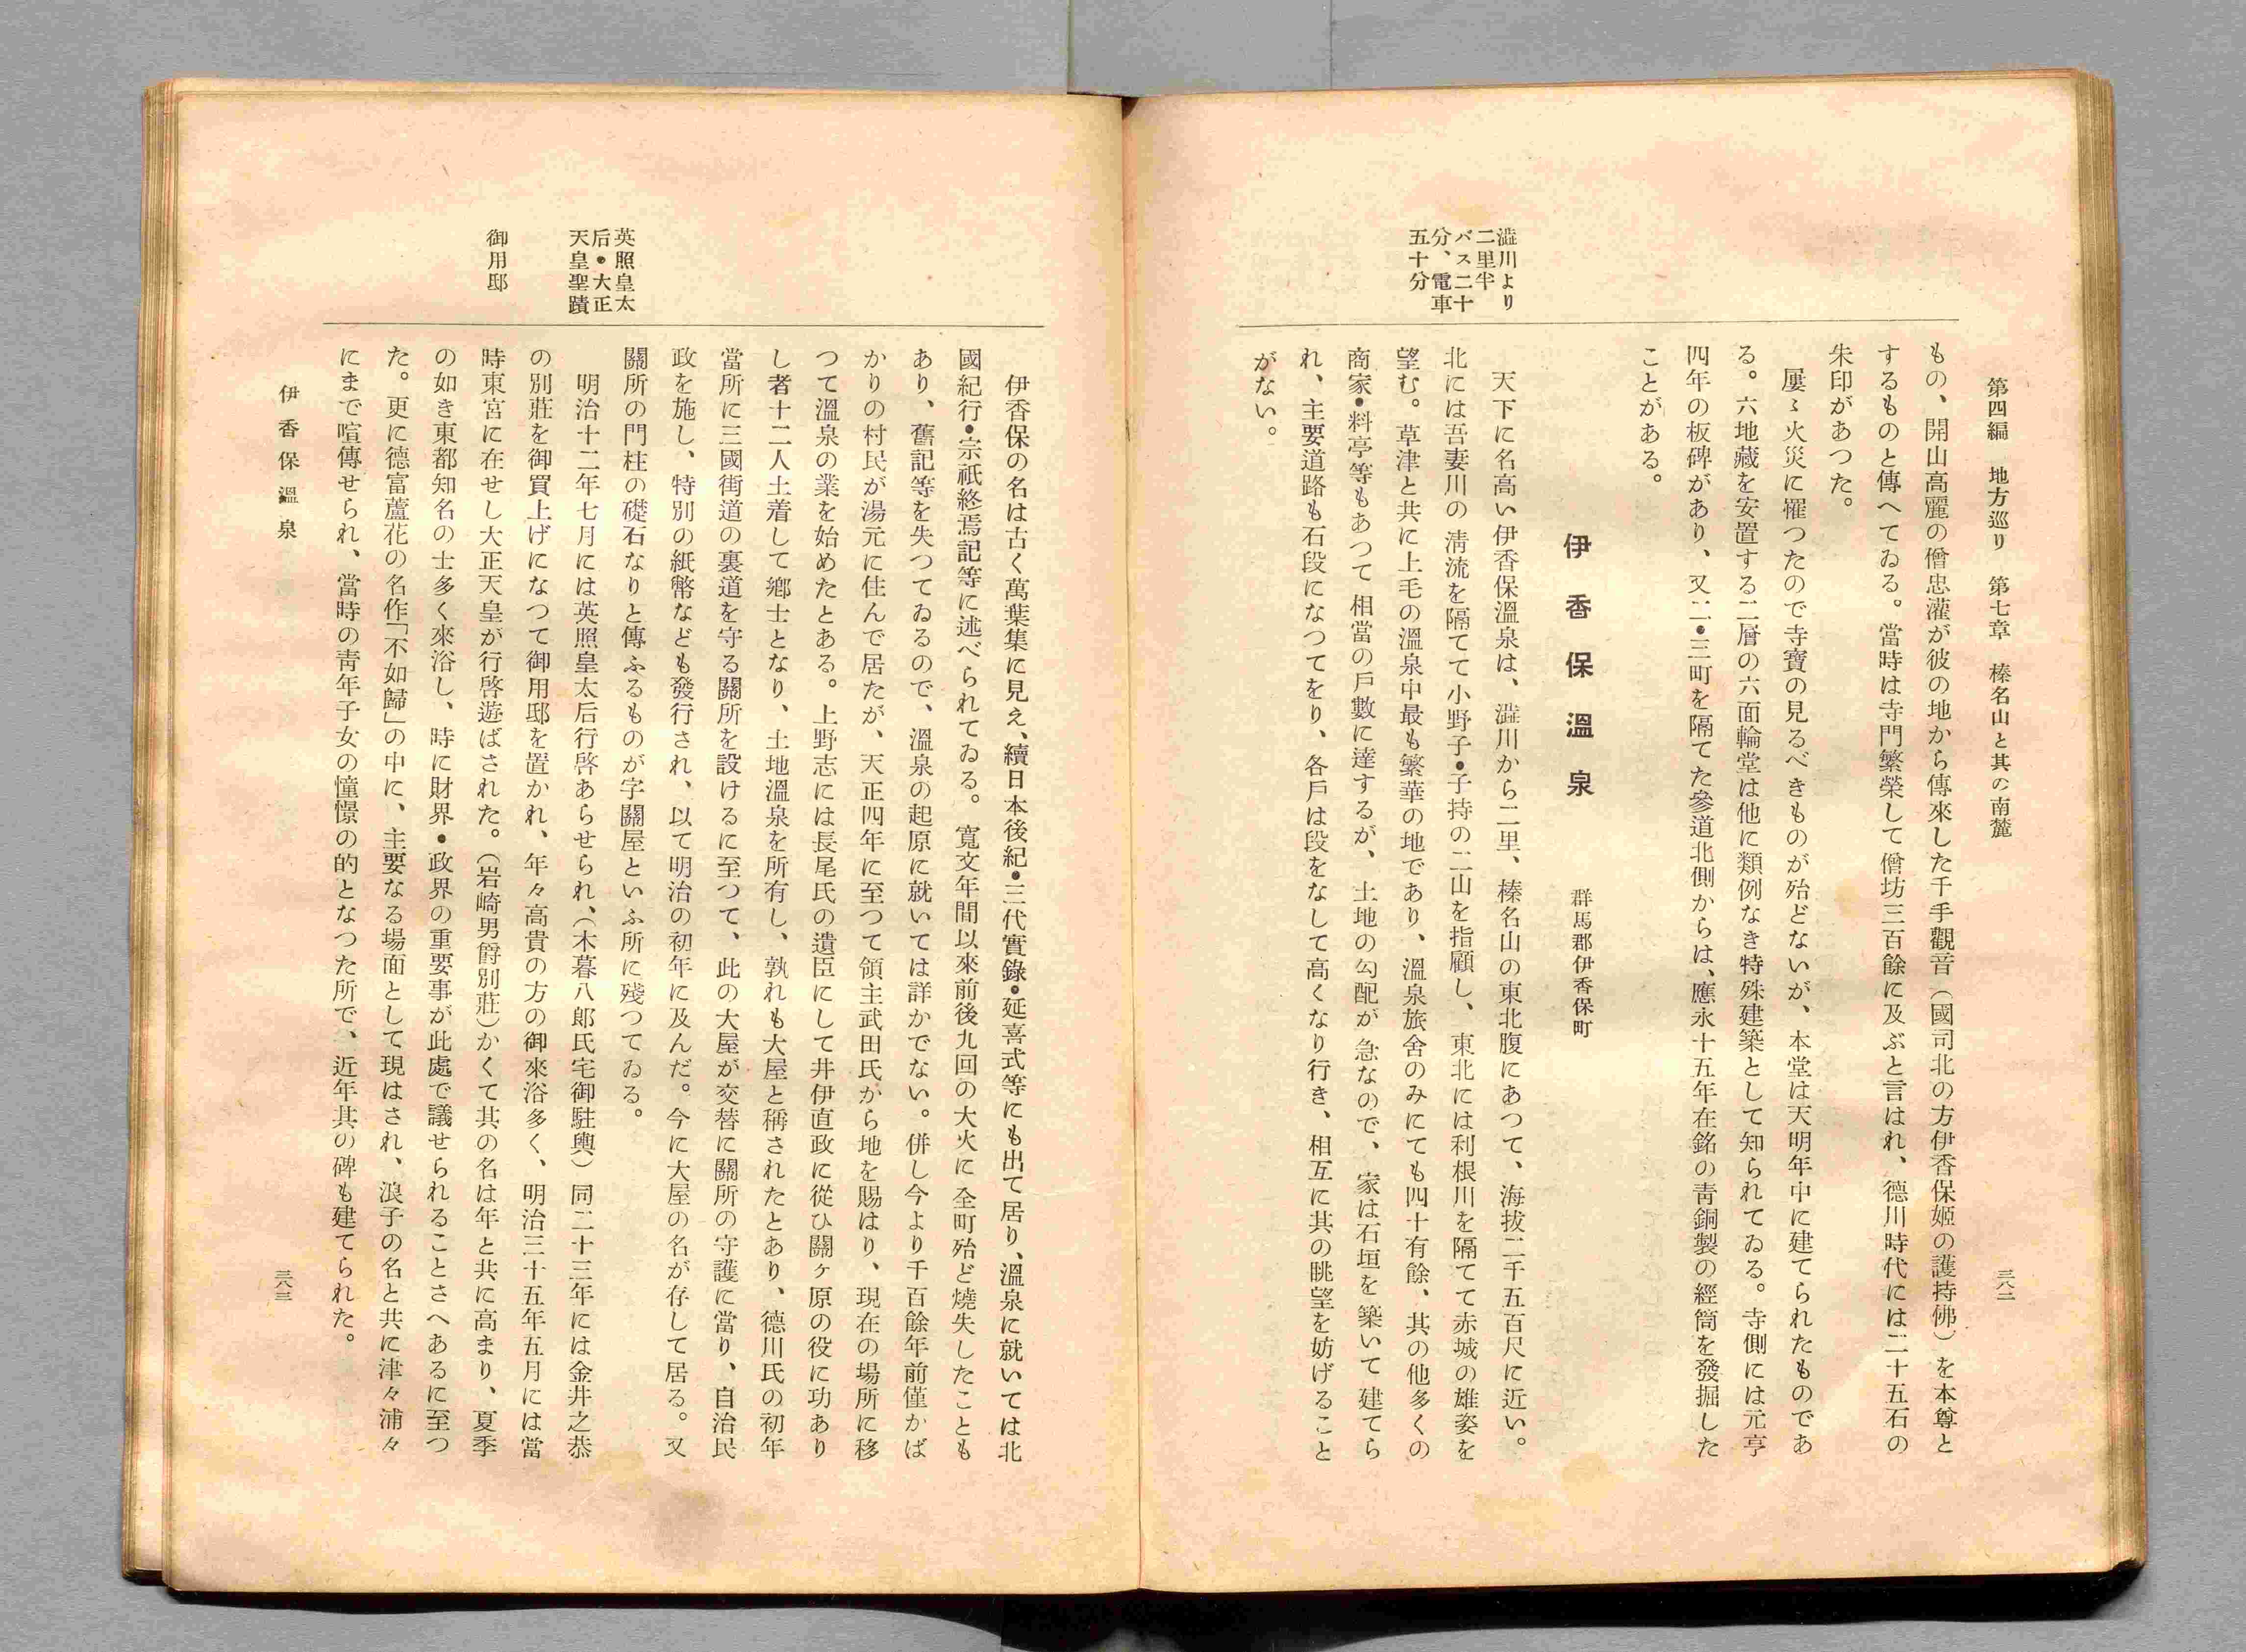 第四編　地方巡り　第七章　榛名山と其の南麓
三八二
もの、開山高麗の僧忠灌が彼の地から傳來した千手觀音（國司北の方伊香保姬の護持佛）を本尊と
するものと傳へてゐる。當時は寺門繁榮して僧坊三百餘に及ぶと言はれ、德川時代には二十五石の
朱印があつた。
屢〻火災に罹つたので寺寶の見るべきものが殆どないが、本堂は天明年中に建てられたものであ
る。六地藏を安置する二層の六面輪堂は他に類例なき特殊建築として知られてゐる。寺側には元亨
四年の板碑があり、又二•三町を隔てた參道北側からは、應永十五年在銘の靑銅製の經筒を發掘した
ことがある。
伊香保溫泉
群馬郡伊香保町
澁川より
二里半
バス二十
分、電車
五十分
天下に名高い伊香保溫泉は、澁川から二里、榛名山の東北腹にあつて、海拔二千五百尺に近い。
北には吾妻川の淸流を隔てて小野子•子持の二山を指顧し、東北には利根川を隔てて赤城の雄姿を
望む。草津と共に上毛の溫泉中最も繁華の地であり、溫泉旅舍のみにても四十有餘、其の他多くの
商家•料亭等もあつて相當の戶數に達するが、土地の勾配が急なので、家は石垣を築いて建てら
れ、主要道路も石段になつてをり、各戶は段をなして高くなり行き、相互に其の眺望を妨げること
がない。
伊香保の名は古く萬葉集に見え、續日本後紀•三代實錄•延喜式等にも出て居り、溫泉に就いては北
國紀行•宗祇終焉記等に述べられてゐる。寬文年間以來前後九回の大火に全町殆ど燒失したことも
あり、舊記等を失つてゐるので、溫泉の起原に就いては詳かでない。併し今より千百餘年前僅かば
かりの村民が湯元に住んで居たが、天正四年に至つて領主武田氏から地を賜はり、現在の場所に移
つて溫泉の業を始めたとある。上野志には長尾氏の遺臣にして井伊直政に從ひ關ヶ原の役に功あり
し者十二人土着して鄕士となり、土地溫泉を所有し、孰れも大屋と稱されたとあり、德川氏の初年
當所に三國街道の裏道を守る關所を設けるに至つて、此の大屋が交替に關所の守護に當り、自治民
政を施し、特別の紙幣なども發行され、以て明治の初年に及んだ。今に大屋の名が存して居る。又
關所の門柱の礎石なりと傳ふるものが字關屋といふ所に殘つてゐる。
英照皇太
后•大正
天皇聖蹟
明治十二年七月には英照皇太后行啓あらせられ、（木暮八郎氏宅御駐輿）同二十三年には金井之恭
の別莊を御買上げになつて御用邸を置かれ、年々高貴の方の御來浴多く、明治三十五年五月には當
御用邸
時東宮に在せし大正天皇が行啓遊ばされた。（岩崎男爵別莊）かくて其の名は年と共に高まり、夏季
の如き東都知名の士多く來浴し、時に財界•政界の重要事が此處で議せられることさへあるに至つ
た。更に德富蘆花の名作「不如歸」の中に、主要なる場面として現はされ、浪子の名と共に津々浦々
にまで喧傳せられ、當時の靑年子女の憧憬の的となつた所で、近年其の碑も建てられた。
伊香保溫泉
三八三